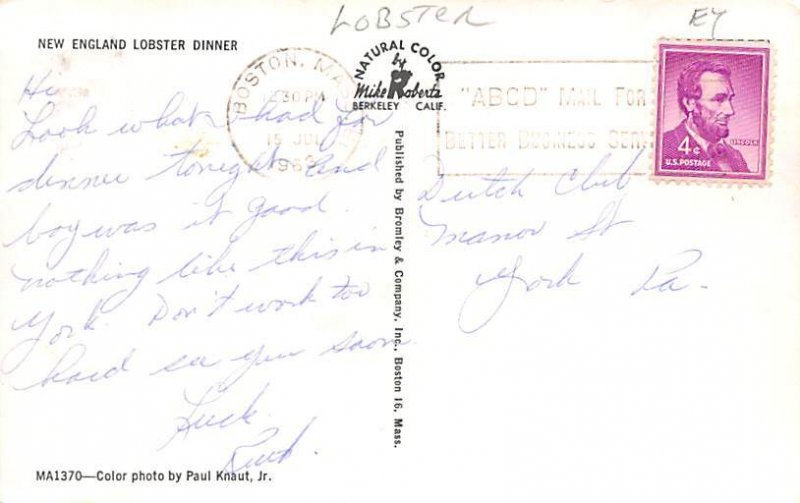 LOBSTER
EY
NEW ENGLAND LOBSTER DINNER
NATURAL COLOR
by
Mike Roberts
BERKELEY CALIF.
BOSTON, MA
30 PM
15 JUL
196
"ABCD" MAIL FOR
BETTER BUSINESS SERV
4¢
LINCOLN
U.S. POSTAGE
Hi
Look what I had for
dinner tonight and
boy was it good.
nothing like this in
York. Don't work too
hard see you soon
Luck.
Dutch Club
Manor St
York Pa.
Published by Bromley & Company, Inc., Boston 16, Mass.
MA1370—Color photo by Paul Knaut, Jr.